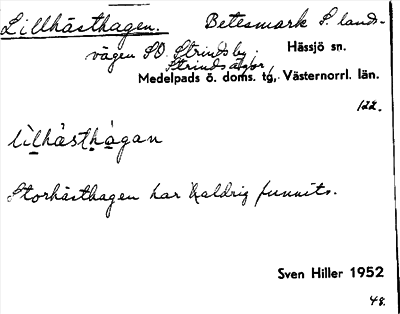 Lillhästhagen. Betesmark S. lands-
vägen SO. Strinds by.
Strinds ägor,
Hässjö sn.
Medelpads ö. doms. tg, Västernorrl. län.
122.
lìlhàsthágan
Storhästhagen har aldrig funnits.
Sven Hiller 1952
48.